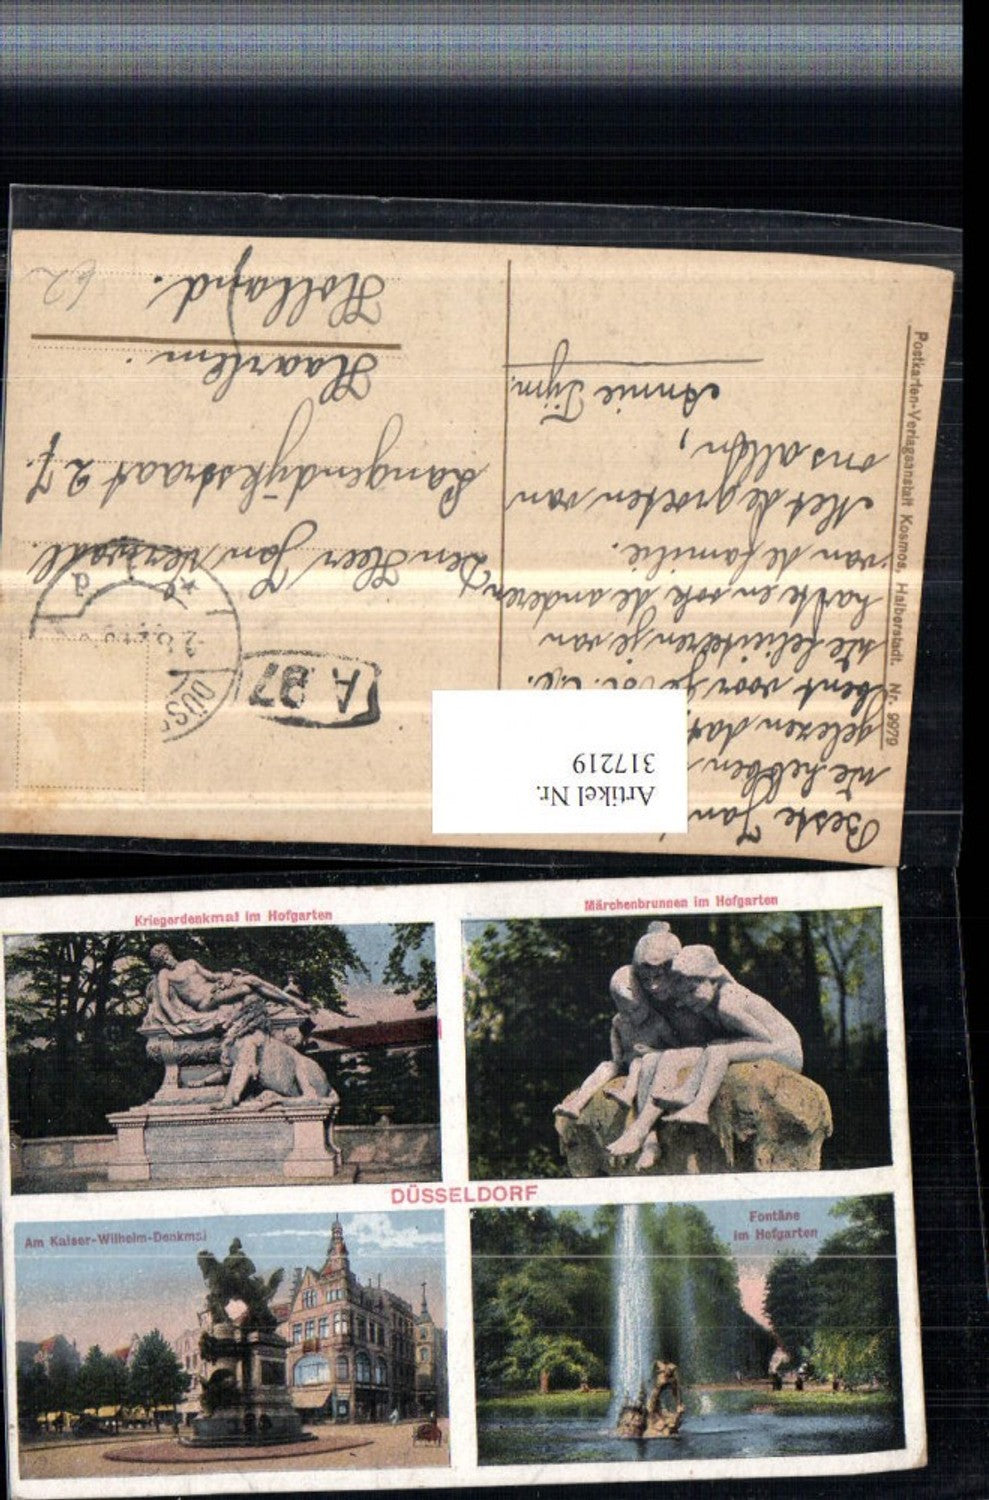 Beste Jan
we hebben
gelezen dat
bent voor je
we feliciteren je van
harte en ook de anderen
van de familie.
Met de groeten van
ons allen,
Annie Tijm.
Den Heer Jan
Langendijkstraat 27.
Haarlem.
Holland.
62
A.97
DÜSS
d
Postkarten-Verlagsanstalt Kosmos, Halberstadt. Nr. 9979
Artikel Nr.
317219
Kriegerdenkmal im Hofgarten
Märchenbrunnen im Hofgarten
DÜSSELDORF
Am Kaiser-Wilhelm-Denkmal
Fontäne
im Hofgarten